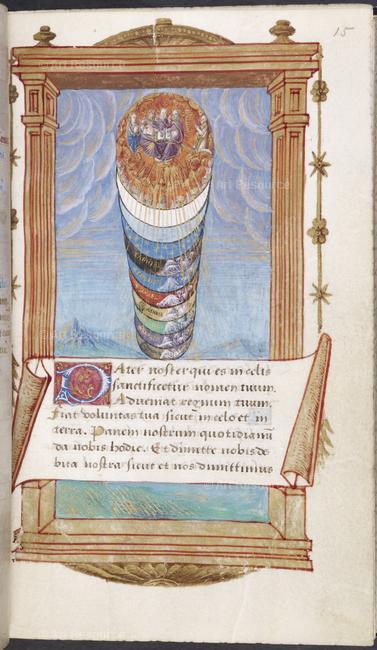 15
Pater noster qui es in celis
sanctificetur nomen tuum.
Adveniat regnum tuum.
Fiat voluntas tua sicut in celo et in
terra. Panem nostrum quotidianū
da nobis hodie. Et dimitte nobis de
bita nostra sicut et nos dimittimus